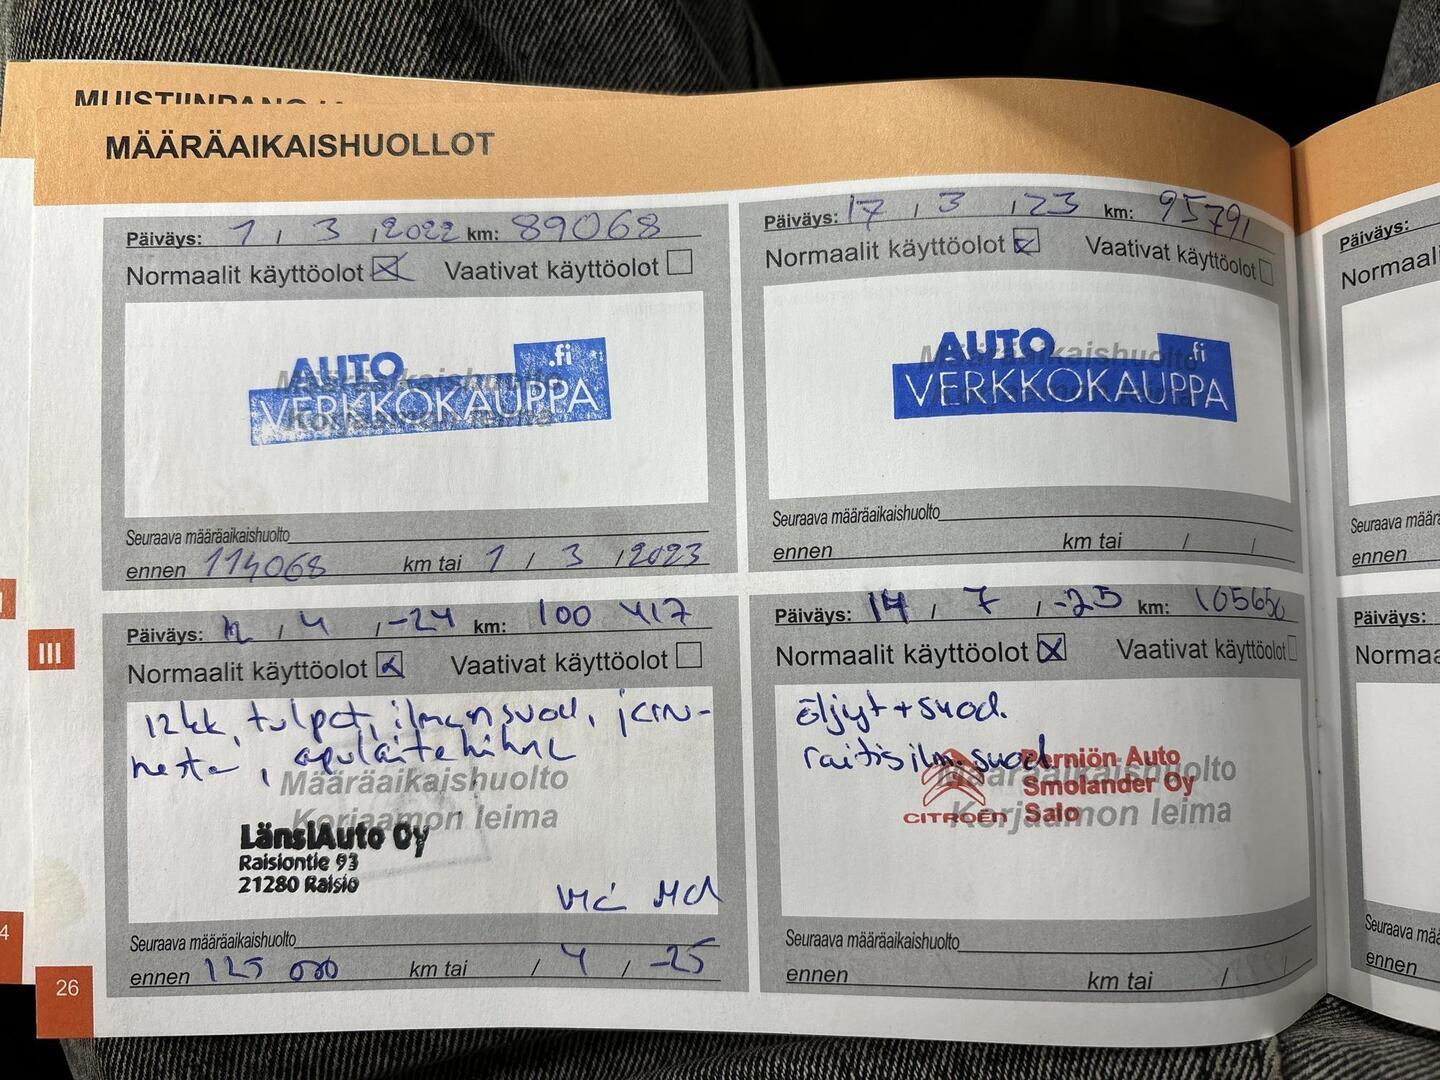 MÄÄRÄAIKAISHUOLLOT
Päiväys: 1 / 3 / 2022 km: 89068
Normaalit käyttöolot Vaativat käyttöolot
AUTO
.fi
VERKKOKAUPPA
Määräaikaishuolto
Korjaamon leima
Seuraava määräaikaishuolto
ennen 114068 km tai 1 / 3 / 2023
Päiväys: 17 / 3 / 23 km: 95791
Normaalit käyttöolot Vaativat käyttöolot
AUTO
.fi
VERKKOKAUPPA
Määräaikaishuolto
Korjaamon leima
Seuraava määräaikaishuolto
ennen km tai / /
Päiväys: / 4 / -24 km: 100 417
Normaalit käyttöolot Vaativat käyttöolot
12kk, tulpat, ilmansuod, jarru-
neste, apulaitehihna
Määräaikaishuolto
Korjaamon leima
LänsiAuto Oy
Raisiontie 93
21280 Raisio
Seuraava määräaikaishuolto
ennen 125 000 km tai / 4 / -25
Päiväys: 14 / 7 / -25 km: 105650
Normaalit käyttöolot Vaativat käyttöolot
öljyt + suod.
raitisilm.suod
Määräaikaishuolto
Korjaamon leima
CITROËN
Perniön Auto
Smolander Oy
Salo
Seuraava määräaikaishuolto
ennen km tai /
III
26
Päiväys:
Seuraava
ennen
Päiväys:
Seuraava
ennen